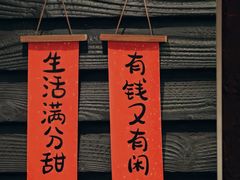 有钱又有闲
生活满分甜